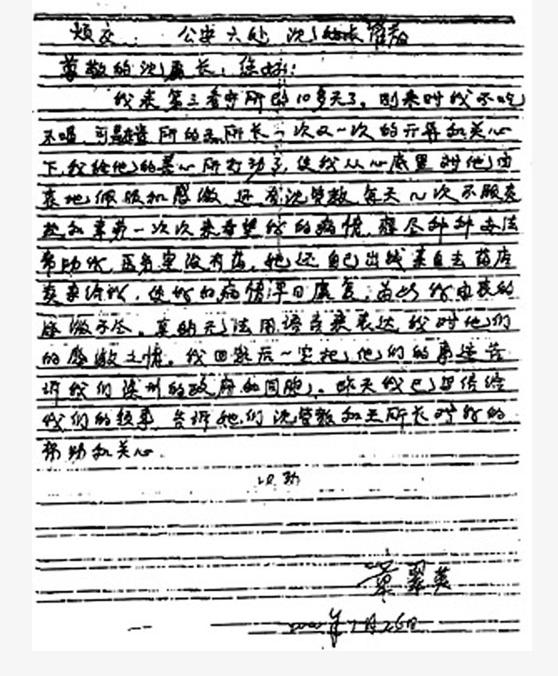 烦交: 公安六处 沈所长
尊敬的沈所长: 您好!
我来第三看守所 10多天了。刚来时我不吃
不喝, 所的王所长一次又一次的开导和关心
下, 我给他们的善心所打动了, 使我从心底里对他们由
衷地佩服和感激 还有沈管教 每天几次不服炎
热和辛劳一次次来看望我的病情, 想尽种种办法
帮助我, 医务室没有药, 她还自己出钱亲自去药店
买来给我, 使我的病情早日康复, 为此我由衷的
感激不尽。真的无法用语言来表达我对他们
的感激之情。我回去后一定把他们的事迹告
诉我们深圳的政府和同胞们。昨天我已写信给
我们的领事, 告诉她们沈管教和王所长对我的
帮助和关心.
翠英
2000年7月26日